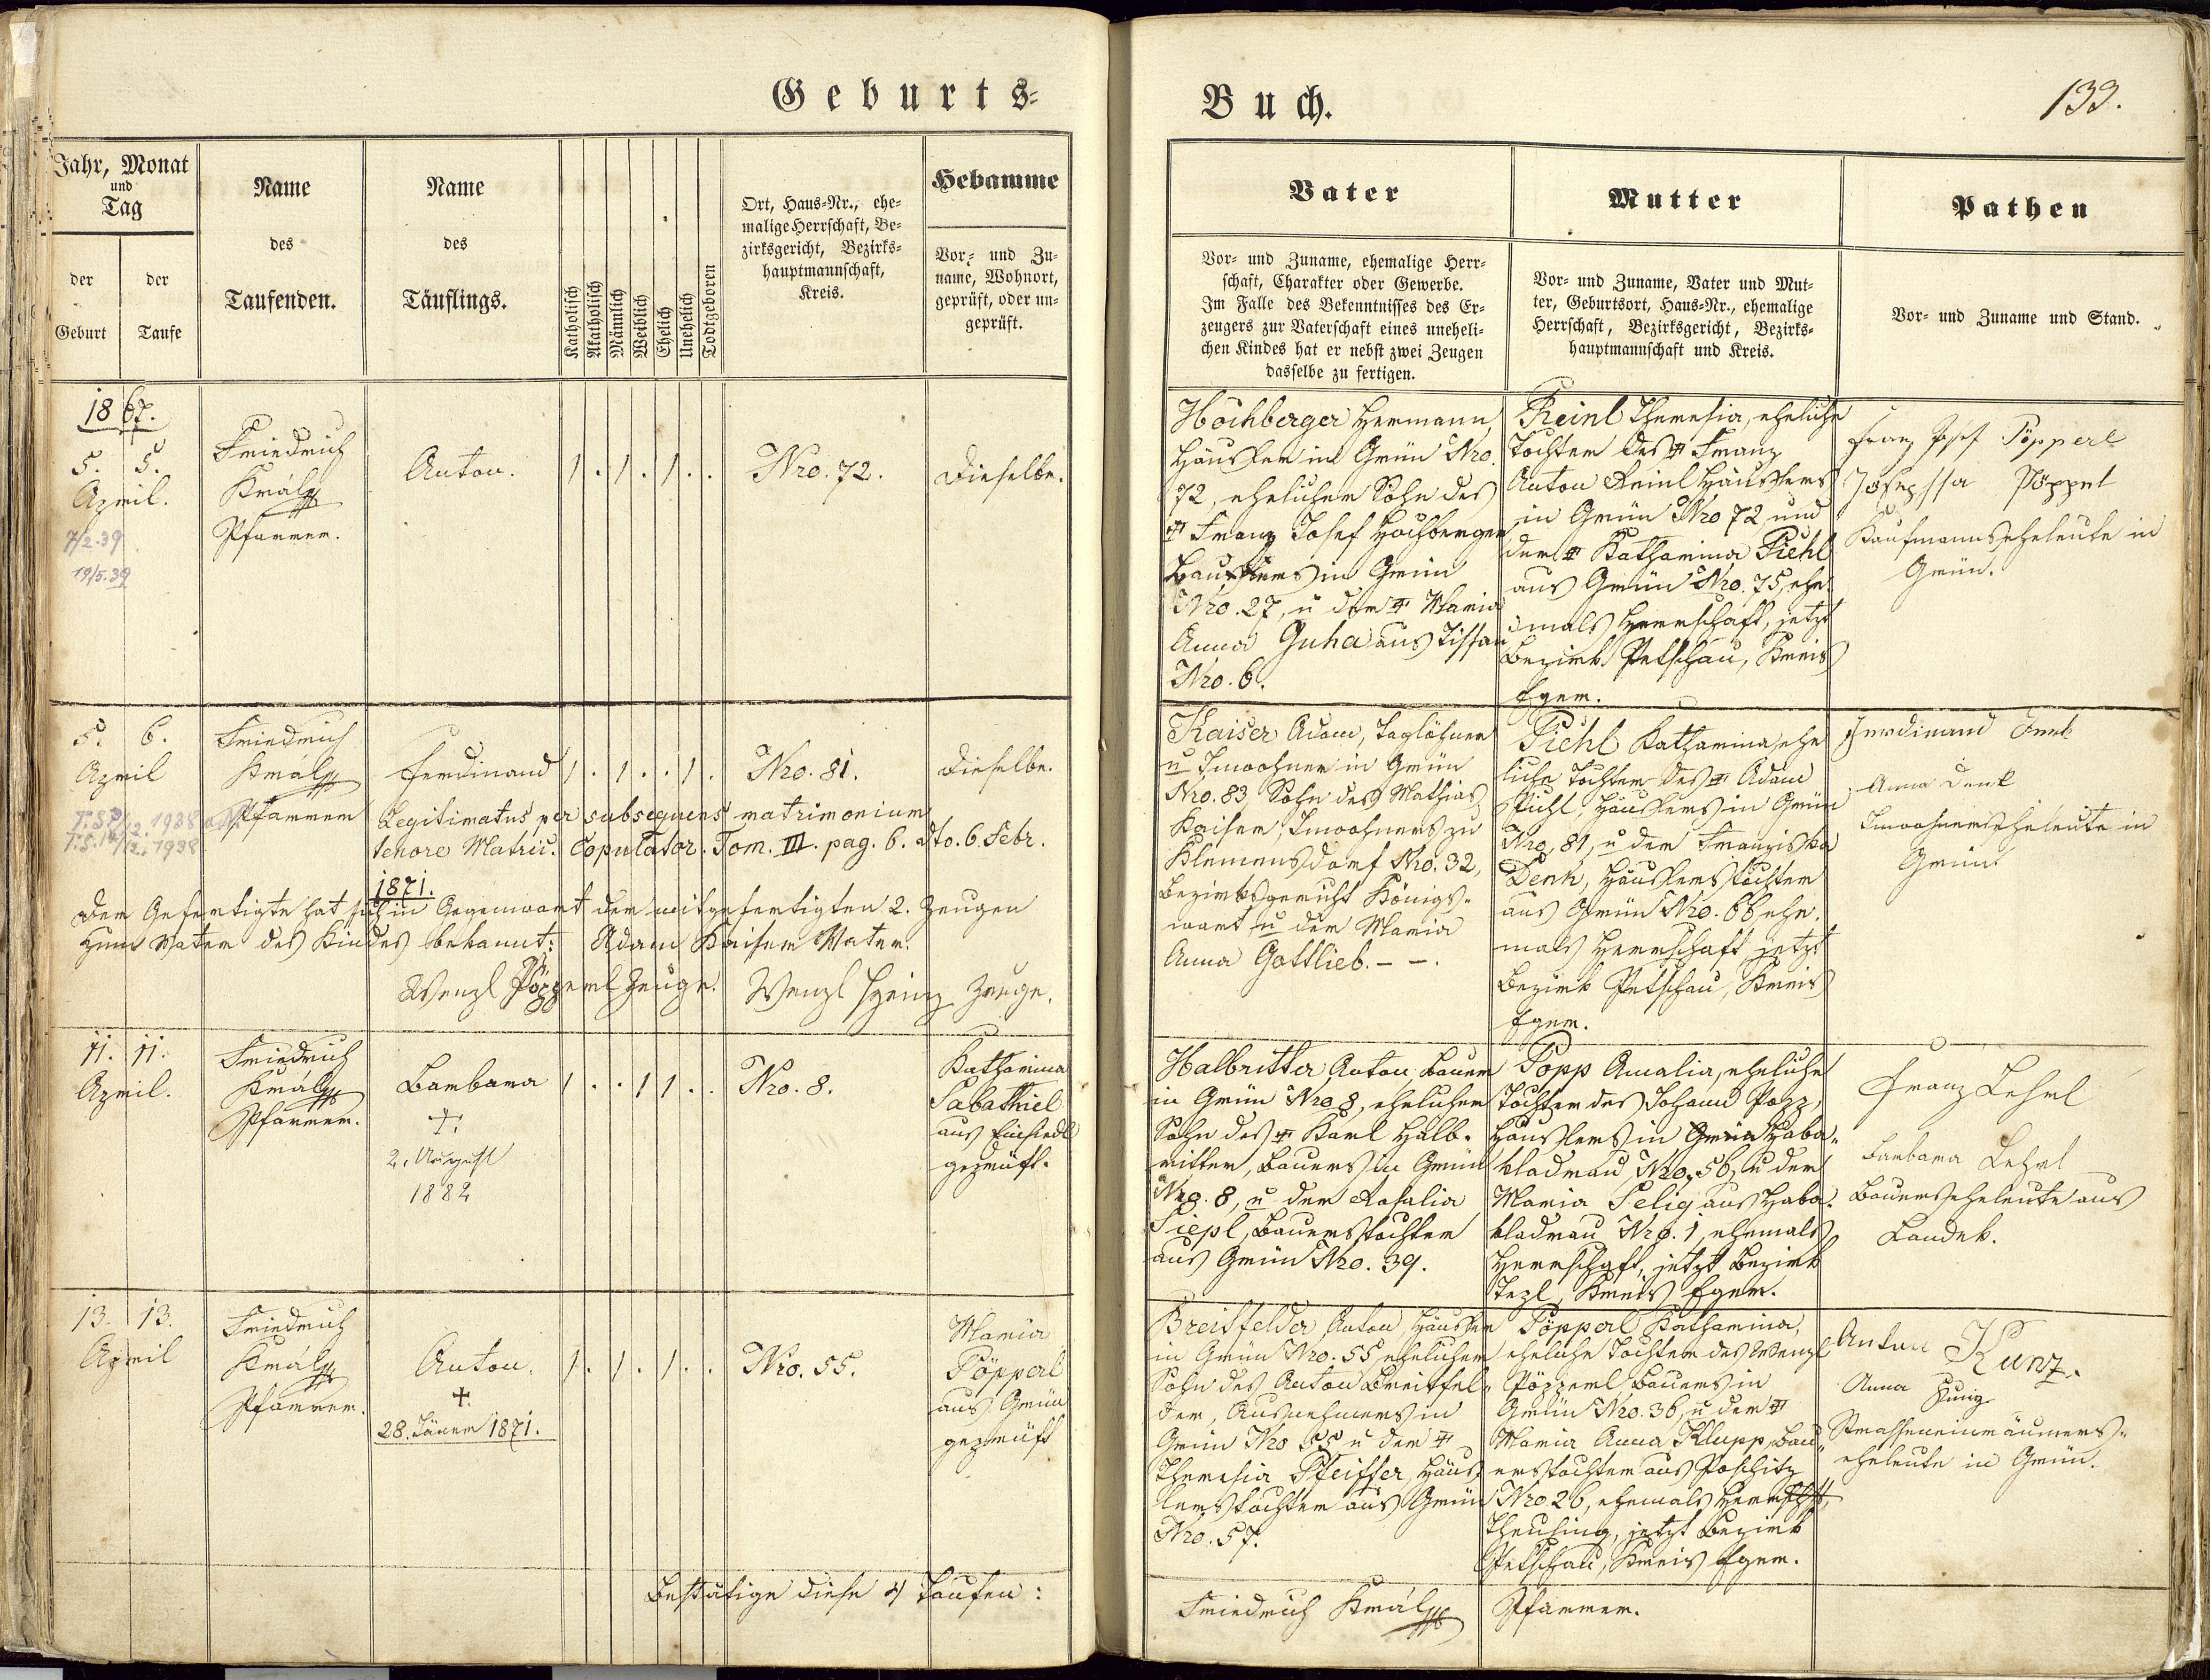 Geburts=
Buch.
133.
Jahr, Monat
und
Tag
der
Geburt
der
Taufe
Name
des
Taufenden.
Name
des
Täuflings.
Katholisch
Akatholisch
Männlich
Weiblich
Ehelich
Unehelich
Todtgeboren
Ort, Haus=Nr., ehe=
malige Herrschaft, Be=
zirksgericht, Bezirks=
hauptmannschaft,
Kreis.
Hebamme
Vor= und Zu=
name, Wohnort,
geprüft, oder un=
geprüft.
Vater
Vor= und Zuname, ehemalige Herr=
schaft, Charakter oder Gewerbe.
Im Falle des Bekenntnisses des Er=
zeugers zur Vaterschaft eines uneheli=
chen Kindes hat er nebst zwei Zeugen
dasselbe zu fertigen.
Mutter
Vor= und Zuname, Vater und Mut=
ter, Geburtsort, Haus=Nr., ehemalige
Herrschaft, Bezirksgericht, Bezirks=
hauptmannschaft und Kreis.
Pathen
Vor= und Zuname und Stand.
1867.
5. 5.
April.
7/2.39
19/5.39
Friedrich
Král
Pfarrer.
Anton.
1 . 1 . 1 . .
Nro. 72.
Dieselbe.
Höchberger Hermann,
Häusler in Grün Nro.
72, ehelicher Sohn des
† Franz Josef Höchberger
Häuslers in Grün
Nro. 27, u der † Maria
Anna Guha aus Tissau
Nro. 6.
Reinl Theresia, eheliche
Tochter des † Franz
Anton Reinl Häuslers
in Grün Nro 72 und
der † Katharina Piehl
aus Grün Nro. 75, ehe
mals Herrschaft, jetzt
Bezirk Petschau, Kreis
Eger.
Franz Josef Pöpperl
Josephfa Pöppel
Kaufmannseheleute in
Grün.
5. 6.
April
1938
1938
Friedrich
Král
Pfarrer
Ferdinand
1 . 1 . . 1 .
Nro. 81.
Dieselbe.
Legitimatus per subsequens matrimonium
tenore Matric. Copulator. Tom. III. pag. 6. dto. 6. Febr.
1871.
Der Gefertigte hat sich in Gegenwart der mitgefertigten 2. Zeugen
zum Vater des Kindes bekannt: Adam Kaiser Vater.
Wenzl Pöpperl Zeuge. Wenzl Heinz Zeuge.
Kaiser Adam, Taglöhner
u Inwohner in Grün
Nro. 83, Sohn des Mathias
Kaiser, Inwohners zu
Klemensdorf Nro. 32,
Bezirksgericht Königs=
wart u der Maria
Anna Gottlieb. – –.
Piehl Katharina, ehe
liche Tochter des † Adam
Piehl, Häuslers in Grün
Nro. 81, u der Franziska
Denk, Häuslerstochter
aus Grün Nro. 66 ehe=
mals Herrschaft jetzt
Bezirk Petschau, Kreis
Eger.
Ferdinand Denk
Anna Denk
Inwohnerseheleute in
Grün
11. 11.
April.
Friedrich
Král
Pfarrer.
Barbara
†.
2. August
1882
1 . . 1 1 . .
Nro. 8.
Katharina
Sabathiel
aus Einsiedl
geprüft.
Halbritter Anton, Bauer
in Grün Nro 8, ehelicher
Sohn des † Karl Halb=
ritter, Bauers in Grün
Nro. 8, u der Rosalia
Siepl, Bauerstochter
aus Grün Nro. 39.
Popp Amalia, eheliche
Tochter des Johann Popp,
Häuslers in Grün Haba=
kladrau Nro. 56, u der
Maria Selig aus Haba=
kladrau Nro. 1, ehemals
Herrschaft, jetzt Bezirk
Tepl, Kreis Eger.
Franz Lehrl
Barbara Lehrl
Bauerseheleute aus
Landek.
13. 13.
April
Friedrich
Král
Pfarrer.
Anton.
†.
28. Jäner 1871.
1 . 1 . 1 . .
Nro. 55.
Maria
Pöpperl
aus Grün
geprüft
Breitfelder Anton Häusler
in Grün Nro. 55 ehelicher
Sohn des Anton Breitfel=
der, Ausnehmers in
Grün Nro 55 u der †
Theresia Pfeiffer, Häus=
lerstochter aus Grün
Nro. 57.
Pöpperl Katharina,
eheliche Tochter des Wenzl
Pöpperl Bauers in
Grün Nro. 36, u der †
Maria Anna Klupp, Bau=
erstochter aus Poschitz
Nro. 26, ehemals Herrschft.
Theusing, jetzt Bezirk
Petschau, Kreis Eger.
Anton Kunz.
Anna Kunz
Strasseneinräumers=
eheleute in Grün.
Bestätige diese 4 Taufen:
Friedrich Král Pfarrer.